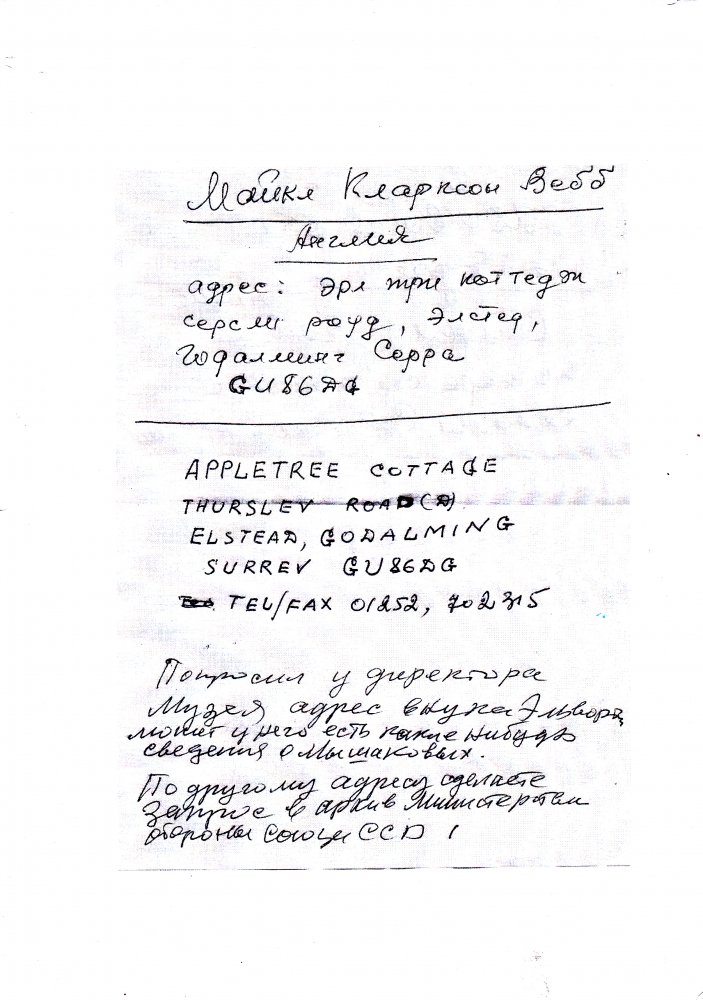 Майкл Кларксон Вебб
Англия
адрес: Эпл три коттедж
серсли роуд, Элстед,
Годалминг Серра
GU86DG
APPLETREE COTTAGE
THURSLEV ROAD (A)
ELSTEAD, GODALMING
SURREV GU86DG
TEL/FAX 01252, 702315
Попросил у директора
Музея адрес внука Эльворт,
может у него есть какие нибудь
сведения о Мышаковых.
По другому адресу сделаете
запрос в архив Министерства
обороны союза ССР